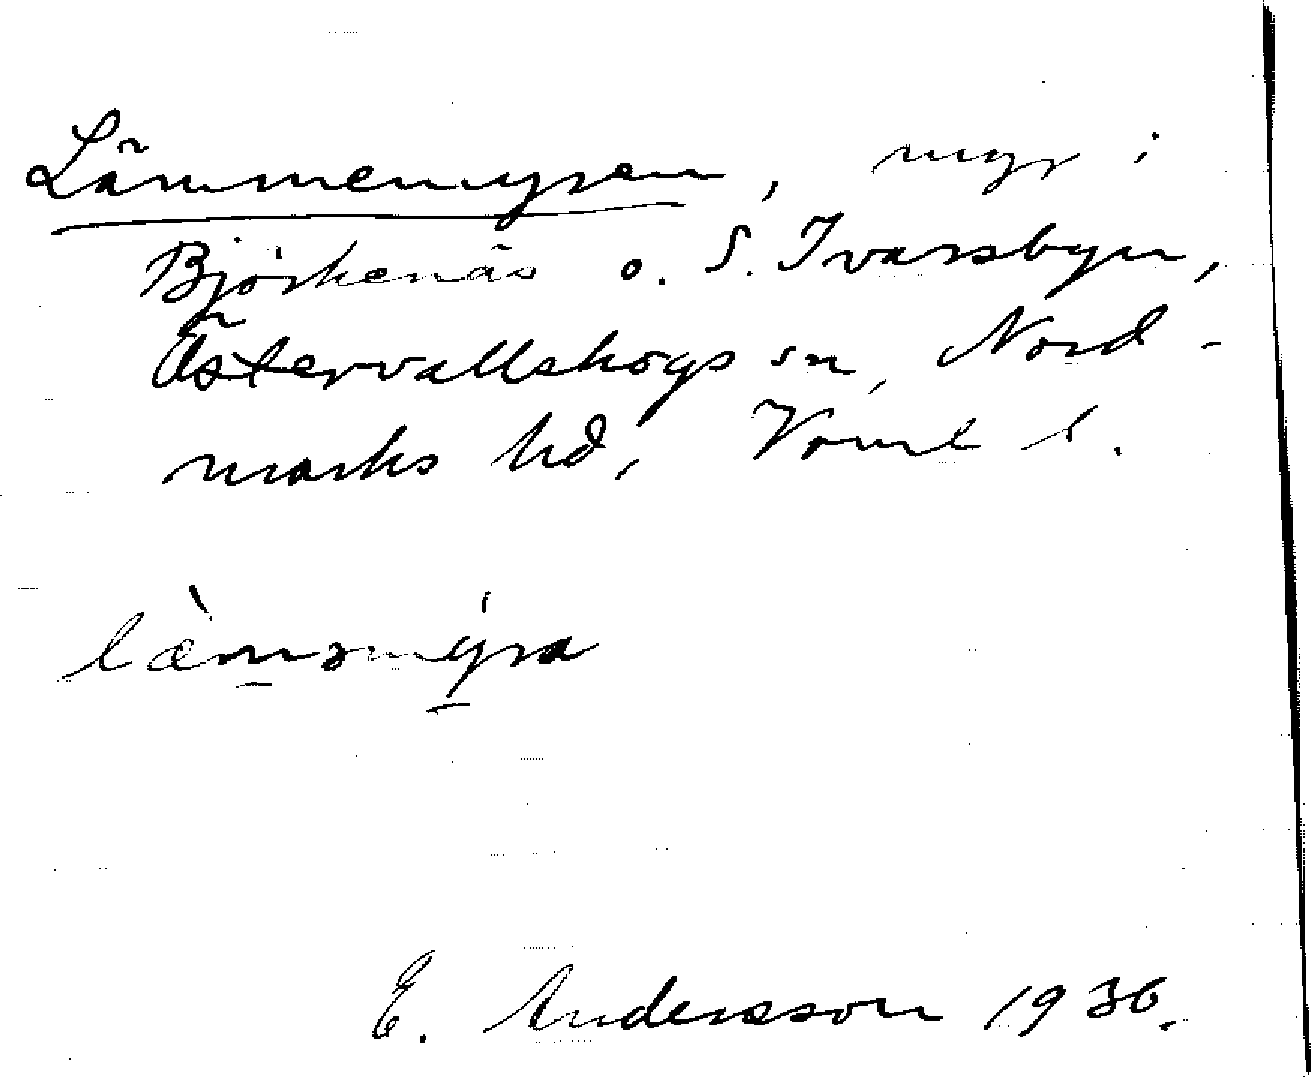 Lämmemyren, myr i
Björkenäs o. S. Ivarsbyn,
Östervallskogs sn, Nord-
marks hd, Värml l.
læ̀məmýra
E. Andersson 1936.